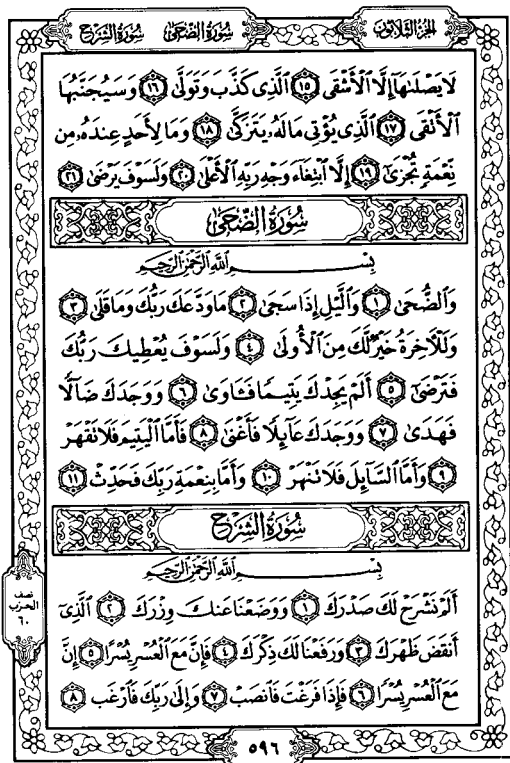 سُورَةُ الشَّرْحِ سُورَةُ الضُّحَىٰ الجُزْءُ الثَّلَاثُونَ
لَا يَصْلَىٰهَآ إِلَّا ٱلْأَشْقَى ١٥ ٱلَّذِى كَذَّبَ وَتَوَلَّىٰ ١٦ وَسَيُجَنَّبُهَا
ٱلْأَتْقَى ١٧ ٱلَّذِى يُؤْتِى مَالَهُۥ يَتَزَكَّىٰ ١٨ وَمَا لِأَحَدٍ عِندَهُۥ مِن
نِّعْمَةٍ تُجْزَىٰٓ ١٩ إِلَّا ٱبْتِغَآءَ وَجْهِ رَبِّهِ ٱلْأَعْلَىٰ ٢٠ وَلَسَوْفَ يَرْضَىٰ ٢١
سُورَةُ الضُّحَىٰ
بِسْمِ ٱللَّهِ ٱلرَّحْمَٰنِ ٱلرَّحِيمِ
وَٱلضُّحَىٰ ١ وَٱلَّيْلِ إِذَا سَجَىٰ ٢ مَا وَدَّعَكَ رَبُّكَ وَمَا قَلَىٰ ٣
وَلَلْءَاخِرَةُ خَيْرٌ لَّكَ مِنَ ٱلْأُولَىٰ ٤ وَلَسَوْفَ يُعْطِيكَ رَبُّكَ
فَتَرْضَىٰٓ ٥ أَلَمْ يَجِدْكَ يَتِيمًا فَـَٔاوَىٰ ٦ وَوَجَدَكَ ضَآلًّا
فَهَدَىٰ ٧ وَوَجَدَكَ عَآئِلًا فَأَغْنَىٰ ٨ فَأَمَّا ٱلْيَتِيمَ فَلَا تَقْهَرْ
٩ وَأَمَّا ٱلسَّآئِلَ فَلَا تَنْهَرْ ١٠ وَأَمَّا بِنِعْمَةِ رَبِّكَ فَحَدِّثْ ١١
سُورَةُ الشَّرْحِ
بِسْمِ ٱللَّهِ ٱلرَّحْمَٰنِ ٱلرَّحِيمِ
أَلَمْ نَشْرَحْ لَكَ صَدْرَكَ ١ وَوَضَعْنَا عَنكَ وِزْرَكَ ٢ ٱلَّذِىٓ
أَنقَضَ ظَهْرَكَ ٣ وَرَفَعْنَا لَكَ ذِكْرَكَ ٤ فَإِنَّ مَعَ ٱلْعُسْرِ يُسْرًا ٥ إِنَّ
مَعَ ٱلْعُسْرِ يُسْرًا ٦ فَإِذَا فَرَغْتَ فَٱنصَبْ ٧ وَإِلَىٰ رَبِّكَ فَٱرْغَب ٨
نصف
الحزب
٦٠
٥٩٦